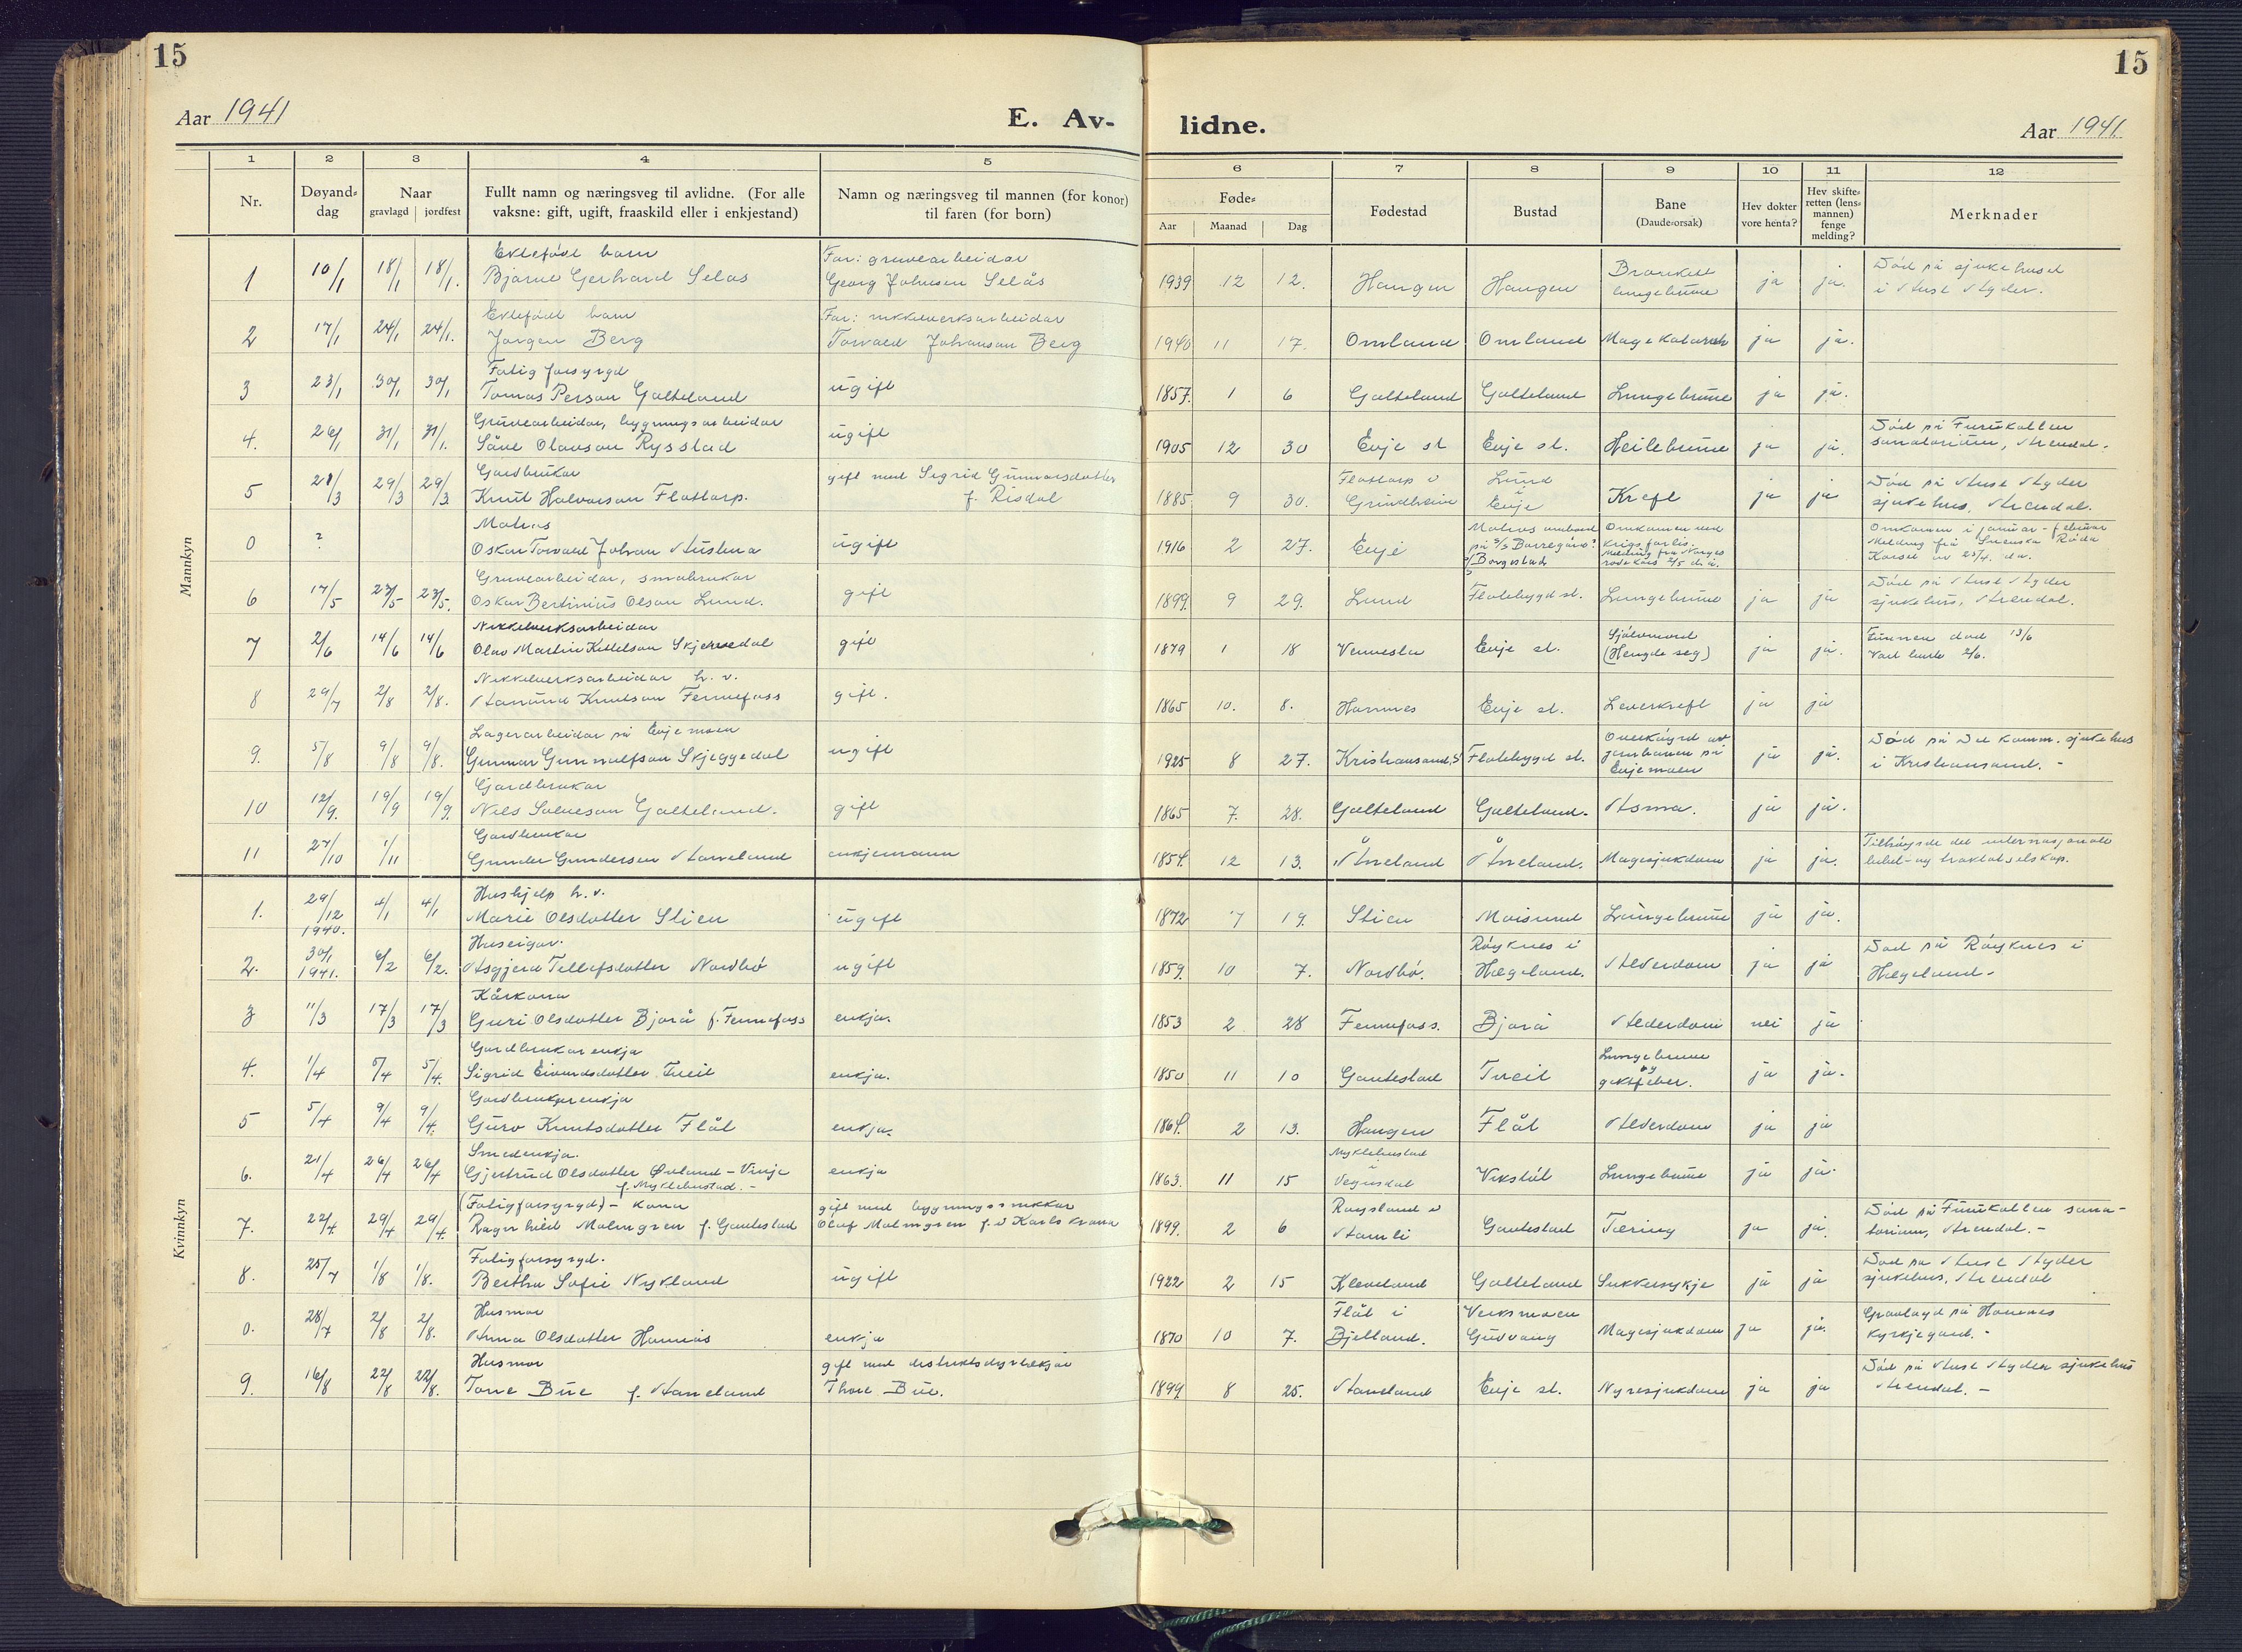 15
15
Aar 1941
E. Av-
lidne.
Aar 1941.
1 2 3 4 5 6 7 8 9 10 11 12
Nr.
Døyand-
dag
Naar
gravlagd jordfest
Fullt namn og næringsveg til avlidne. (For alle
vaksne: gift, ugift, fraaskild eller i enkjestand)
Namn og næringsveg til mannen (for konor)
til faren (for born)
Føde-
Aar Maanad Dag
Fødestad
Bustad
Bane
(Daude-orsak)
Hev dokter
vore henta?
Hev skifte-
retten (lens-
mannen)
fenge
melding?
Merknader
Mannkyn
Ektefødt barn Far: gruvearbeidar Bronkitt Død på sjukehuset
1 10/1 18/1 18/1. Bjarne Gerhard Selås Georg Johnsen Selås 1939 12 12. Haugen Haugen lungebrune ja ja. i Aust Agder.
Ektefødt barn Far: nikkelverksarbeidar
2 17/1 24/1 24/1. Jørgen Berg Torvald Johanson Berg 1940 11 17. Omland Omland Magekatarrh ja ja.
Fatig forsyrgd
3 23/1 30/1 30/1 Tomas Person Galteland ugift 1857. 1 6 Galteland Galteland Lungebrune ja ja.
Gruvearbeidar, bygningsarbeidar Død på Furukollen
4. 26/1 31/1 31/1. Såve Olavson Rysstad ugift 1905 12 30 Evje st Evje st. Heilebrune ja ja. sanatorium, Arendal.
Gardbrukar gift med Sigrid Gunvorsdotter Flottorp i Lund i Død på Aust Agder
5 21/3 29/3 29/3 Knut Halvorson Flottorp. f. Risdal 1885 9 30. Grindheim Evje Kreft ja ja sjukehus, Arendal.
Matros Matros ombord Omkomen ved Omkomen i januar - februar
0 ? Oskar Torvald Johan Austena ugift 1916 2 27. Evje på S/S Borregård? krigsforlis. Melding frå Svenska Röda
Borgestad Melding fra Norges røde kors 2/5 d.a. Korset av 23/4. d.a.
Gruvearbeidar, småbrukar Død på Aust Agder
6 17/5 23/5 23/5. Oskar Bertinius Olson Lund. gift 1899. 9 29. Lund Flatebygd st. Lungebrune ja ja sjukehus, Arendal.
Nikkelverksarbeidar Sjølvmord Funnen død 13/6
7 2/6 14/6 14/6 Olav Martin Kittelson Skjerredal gift 1879 1 18 Vennesla Evje st. (Hengde seg) ja ja. Vart burte 2/6.
Nikkelverksarbeidar h. v.
8 29/7 2/8 2/8. Aanund Knutson Fennefoss gift. 1865 10. 8. Hornnes Evje st. Leverkreft ja ja
Lagerarbeidar på Evjemoen Overkøyrd av Død på Det komm. sjukehus
9. 5/8 9/8 9/8. Gunnar Gunnulfson Skjeggedal ugift 1925 8 27. Kristiansand, S Flatebygd st. jernbanen på Evjemoen ja ja. i Kristiansand. -
Gardbrukar
10 12/9. 19/9 19/9. Nils Salveson Galteland. gift 1865 7. 28. Galteland Galteland. Asma. ja ja.
Gardbrukar Tilhøyrde det internasjonale
11 27/10 1/11 Gunder Gundersen Aaneland enkjemann 1854. 12 13. Åneland Åneland. Magesjukdom ja ja. bibel- og traktatselskap.
Kvinnkyn
Hushjelp h. v.
1. 29/12 1940. 4/1 4/1 Marie Olsdotter Stien ugift 1872 7 19. Stien Moisund Lungebrune ja ja.
Huseigar. Røyknes i Død på Røyknes i
2. 30/1 1941. 6/2 6/2. Asgjerd Tellefsdotter Nordbø ugift 1859. 10 7. Nordbø. Hægeland. Alderdom ja ja Hægeland -
Kårkona
3 11/3 17/3 17/3 Guri Olsdotter Bjorå f. Fennefoss enkja. 1853 2 28 Fennefoss. Bjorå Alderdom nei ja
Gardbrukarenkja Lungebrune og
4. 1/4 5/4 5/4. Sigrid Eivindsdotter Tveit enkja. 1850 11 10 Gautestad Tveit giktfeber. ja ja.
Gardbrukarenkja
5 5/4 9/4 9/4. Guro Knutsdotter Flåt enkja. 1864. 2 13. Haugen Flåt Alderdom ja ja
Smedenkja. Myklebustad i
6. 21/4 26/4 26/4 Gjertrud Olsdotter Øvland - Vinje enkja 1863. 11 15 Vegusdal Vikstøl Lungebrune ja ja.
f. Myklebustad. -
(Fatigforsyrgd) - kona gift med bygningssnikkar Røysland i Død på Furukollen sana-
7. 22/4. 29/4 29/4. Ragnhild Malmgren f. Gautestad Olaf Malmgren f. i Karlskrona 1899. 2 6 Aamli Gautestad Tæring ja ja. torium, Arendal. -
Fatigforsyrgd. Død på Aust Agder
8. 25/7 1/8 1/8. Bertha Sofie Nykland ugift 1922 2 15 Kleveland Galteland Sukkersykje ja ja sjukehus, Arendal
Husmor Flåt i Verksmoen Gravlagd på Hornnes
0. 28/7 2/8 2/8. Anna Olsdotter Hornnes enkja 1870 10 7. Bjelland. Gudvang Magesjukdom ja ja. kyrkjegard. -
Husmor gift med distriktsdyrlækjar Død på Aust Agder sjukehus
9. 16/8 22/8 22/8. Tone Bue f. Aaneland Thore Bue. 1899. 8 25. Aaneland Evje st. Nyresjukdom ja ja Arendal. -